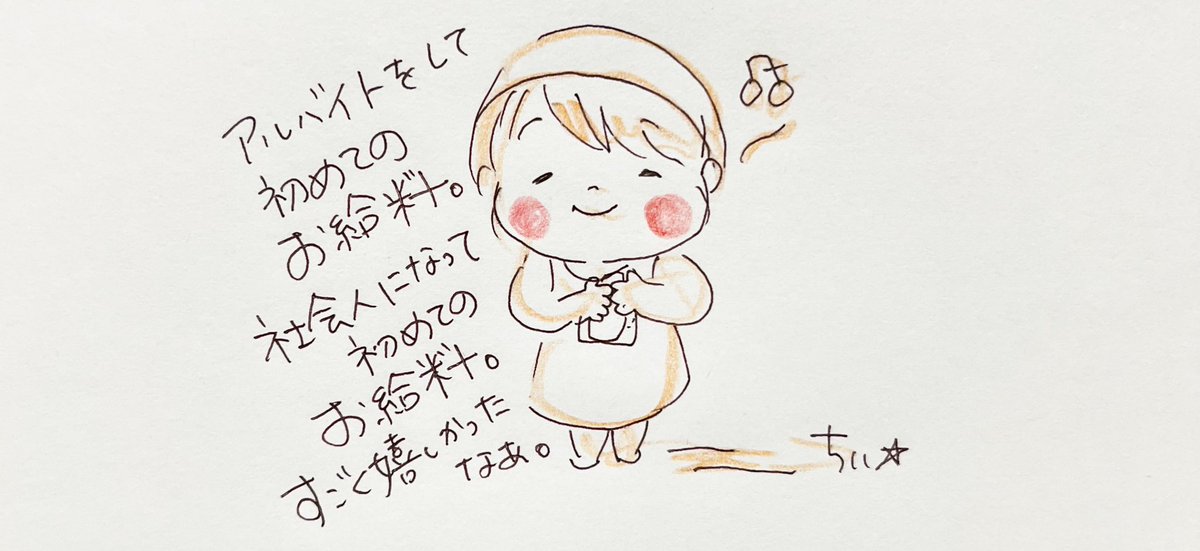 アルバイトをして
初めての
お給料。
社会人になって
初めての
お給料。
すごく嬉しかった
なぁ。
ちい☆